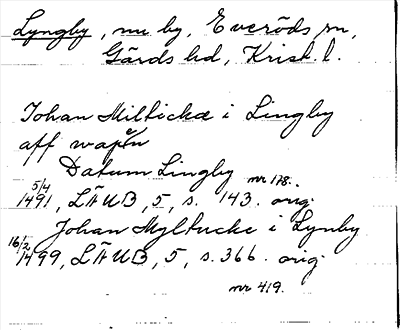 Lyngby, nu by, Everöds sn,
Gärds hd, Krist. l.
Johan Miltickæ i Lingby
aff wapñ
Datum Lingby nr 178.
5/4 1491, LÄUB, 5, s. 143. orig.
Johan Myltucke i Lynby
16/2 1499, LÄUB, 5, s. 366. orig.
nr 419.